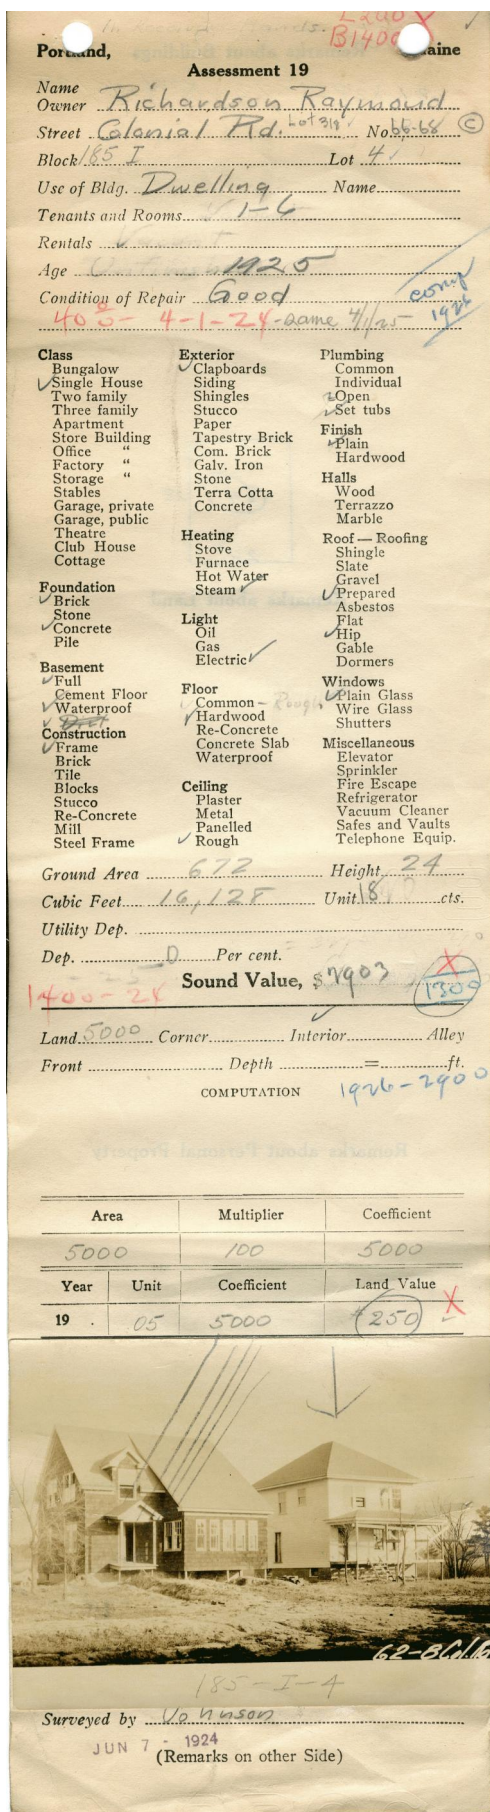 L200 X
B1400
Portland, Maine
Assessment 19
Name
Owner Richardson Raymond
Street Colonial Rd. Lot 318 No 66-68 ©
Block 185 I Lot 4
Use of Bldg. Dwelling Name
Tenants and Rooms 1-6
Rentals
Age 1925
Condition of Repair Good
comp
1926
400- 4-1-24-same 4/1/25
Class
Bungalow
✓Single House
Two family
Three family
Apartment
Store Building
Office "
Factory "
Storage "
Stables
Garage, private
Garage, public
Theatre
Club House
Cottage
Foundation
✓Brick
Stone
✓Concrete
Pile
Basement
✓Full
Cement Floor
✓Waterproof
Construction
✓Frame
Brick
Tile
Blocks
Stucco
Re-Concrete
Mill
Steel Frame
Exterior
✓Clapboards
Siding
Shingles
Stucco
Paper
Tapestry Brick
Com. Brick
Galv. Iron
Stone
Terra Cotta
Concrete
Heating
Stove
Furnace
Hot Water
Steam ✓
Light
Oil
Gas
Electric ✓
Floor
✓Common - Rough
✓Hardwood
Re-Concrete
Concrete Slab
Waterproof
Ceiling
Plaster
Metal
Panelled
✓Rough
Plumbing
Common
Individual
✓Open
✓Set tubs
Finish
✓Plain
Hardwood
Halls
Wood
Terrazzo
Marble
Roof — Roofing
Shingle
Slate
Gravel
✓Prepared
Asbestos
Flat
✓Hip
Gable
Dormers
Windows
✓Plain Glass
Wire Glass
Shutters
Miscellaneous
Elevator
Sprinkler
Fire Escape
Refrigerator
Vacuum Cleaner
Safes and Vaults
Telephone Equip.
Ground Area 672 Height 24
Cubic Feet 16,128 Unit 18 cts.
Utility Dep.
Dep. 0 Per cent.
Sound Value, $ 2903 X
1400-24 1300
Land 5000 Corner Interior ✓ Alley
Front Depth = ft.
COMPUTATION 1926-2900
Area Multiplier Coefficient
5000 100 5000
Year Unit Coefficient Land Value
19 . 05 5000 250 X
62-8 Col. Rd
185-I-4
Surveyed by Johnson
JUN 7 - 1924
(Remarks on other Side)